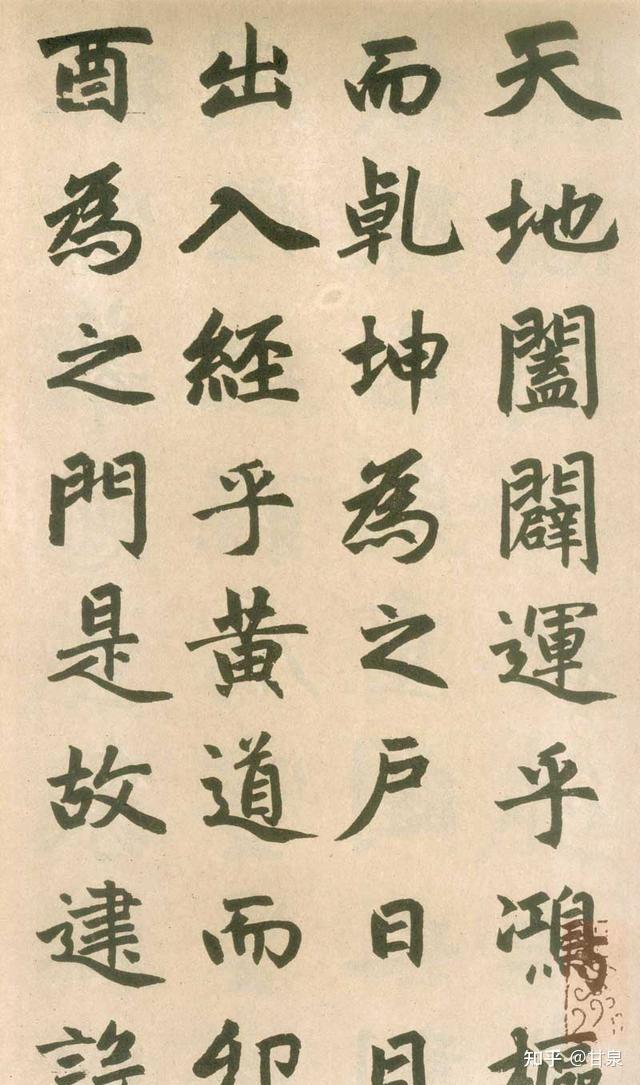 天地闔闢運乎鴻
而乾坤為之户日月
出入經乎黃道而卯
酉為之門是故建
知乎 @甘泉